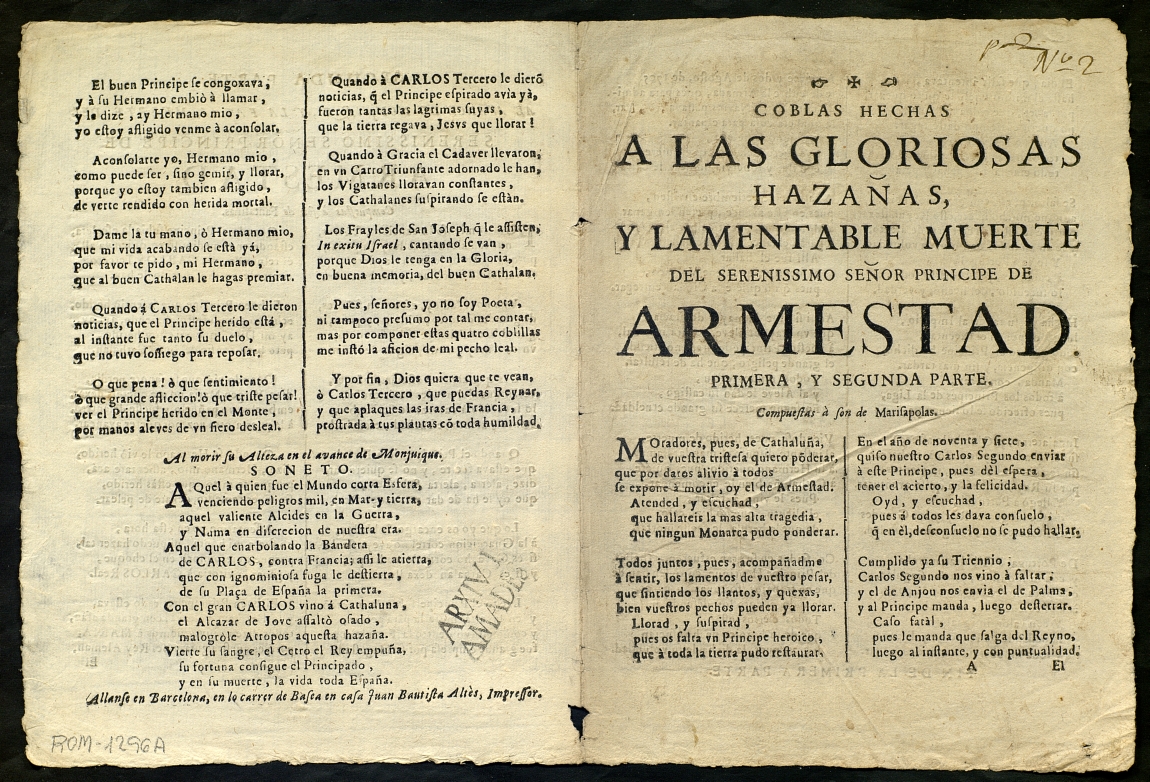 El buen Principe se congoxava,
y à su Hermano embiò à llamar,
y le dize, ay Hermano mio,
yo estoy afligido venme à aconsolar.
Aconsolarte yo, Hermano mio,
como puede ser, sino gemir, y llorar,
porque yo estoy tambien afligido,
de verte rendido con herida mortal.
Dame la tu mano, ò Hermano mio,
que mi vida acabando se està yá,
por favor te pido, mi Hermano,
que al buen Cathalan le hagas premiar.
Quando á CARLOS Tercero le dieron
noticias, que el Principe herido està,
al instante fue tanto su duelo,
que no tuvo sossiego para reposar.
O que pena! ò que sentimiento!
ò que grande afliccion! ò que triste pesar!
ver el Principe herido en el Monte,
por manos aleves de vn fiero desleal.
Quando à CARLOS Tercero le dierõ
noticias, q̃ el Principe espirado avia yà,
fueron tantas las lagrimas suyas,
que la tierra regava, Jesvs que llorar!
Quando à Gracia el Cadaver llevaron,
en vn Carro Triunfante adornado le han,
los Vigatanes lloravan constantes,
y los Cathalanes suspirando se estàn.
Los Frayles de San Joseph q̃ le assisten,
In exitu Israel, cantando se van,
porque Dios le tenga en la Gloria,
en buena memoria, del buen Cathalan.
Pues, señores, yo no soy Poeta,
ni tampoco presumo por tal me contar,
mas por componer estas quatro coblillas
me instó la aficion de mi pecho leal.
Y por fin, Dios quiera que te vean,
ò Carlos Tercero, que puedas Reynar,
y que aplaques las iras de Francia,
prostrada à tus plantas cõ toda humildad.
Al morir su Alteza en el avance de Monjuique.
SONETO.
AQuel à quien fue el Mundo corta Esfera,
venciendo peligros mil, en Mar y tierra,
aquel valiente Alcides en la Guerra,
y Numa en discrecion de nuestra era.
Aquel que enarbolando la Bandera
de CARLOS, contra Francia; assi le atierra,
que con ignominiosa fuga le destierra,
de su Plaça de España la primera.
Con el gran CARLOS vino à Cathaluna,
el Alcazar de Jove assaltò osado,
malogròle Atropos aquesta hazaña.
Vierte su sangre, el Cetro el Rey empuña,
su fortuna consigue el Principado,
y en su muerte, la vida toda España.
Allanse en Barcelona, en lo carrer de Basea en casa Juan Bautista Altès, Impressor.
ARXIU
AMADES
ROM-1296A
Nº 2
COBLAS HECHAS
A LAS GLORIOSAS
HAZAÑAS,
Y LAMENTABLE MUERTE
DEL SERENISSIMO SEÑOR PRINCIPE DE
ARMESTAD.
PRIMERA, Y SEGUNDA PARTE.
Compuestas à son de Marisapolas.
MOradores, pues, de Cathaluña,
de vuestra tristesa quiero põderar,
que por daros alivio à todos
se expone à morir, oy el de Armestad.
Atended, y escuchad,
que hallareis la mas alta tragedia,
que ningun Monarca pudo ponderar.
Todos juntos, pues, acompañadme
à sentir, los lamentos de vuestro pesar,
que sintiendo los llantos, y quexas,
bien vuestros pechos pueden ya llorar.
Llorad, y suspirad,
pues os falta vn Principe heroico,
que à toda la tierra pudo restaurar.
En el año de noventa y siete,
quiso nuestro Carlos Segundo enviar
à este Principe, pues dèl espera,
tener el acierto, y la felicidad.
Oyd, y escuchad,
pues á todos les dava consuelo,
q̃ en èl, desconsuelo no se pudo hallar.
Cumplido ya su Triennio,
Carlos Segundo nos vino à faltar;
y el de Anjou nos envia el de Palma,
y al Principe manda, luego desterrar.
Caso fatàl,
pues le manda que salga del Reyno,
luego al instante, y con puntualidad.
A
El